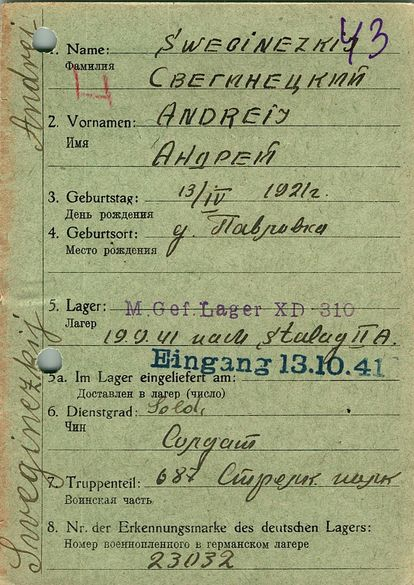 43
1. Name: SWEGINEZKIJ
Фамилия
СВЕГИНЕЦКИЙ
2. Vornamen: ANDREIJ
Имя
АНДРЕЙ
3. Geburtstag: 13/IV 1921г.
День рождения
4. Geburtsort: д. Павровка
Место рождения
5. Lager: M.Gef.Lager XD 310
Лагерь
19.9.41 nach Stalag II A.
Eingang 13.10.41
5a. Im Lager eingeliefert am:
Доставлен в лагерь (число)
6. Dienstgrad: Sold.
Чин
Солдат
7. Truppenteil: 687 Стрелк
Воинская часть
8. Nr. der Erkennungsmarke des deutschen Lagers:
Номер военнопленного в германском лагере
23032
Sweginezkij Andrej